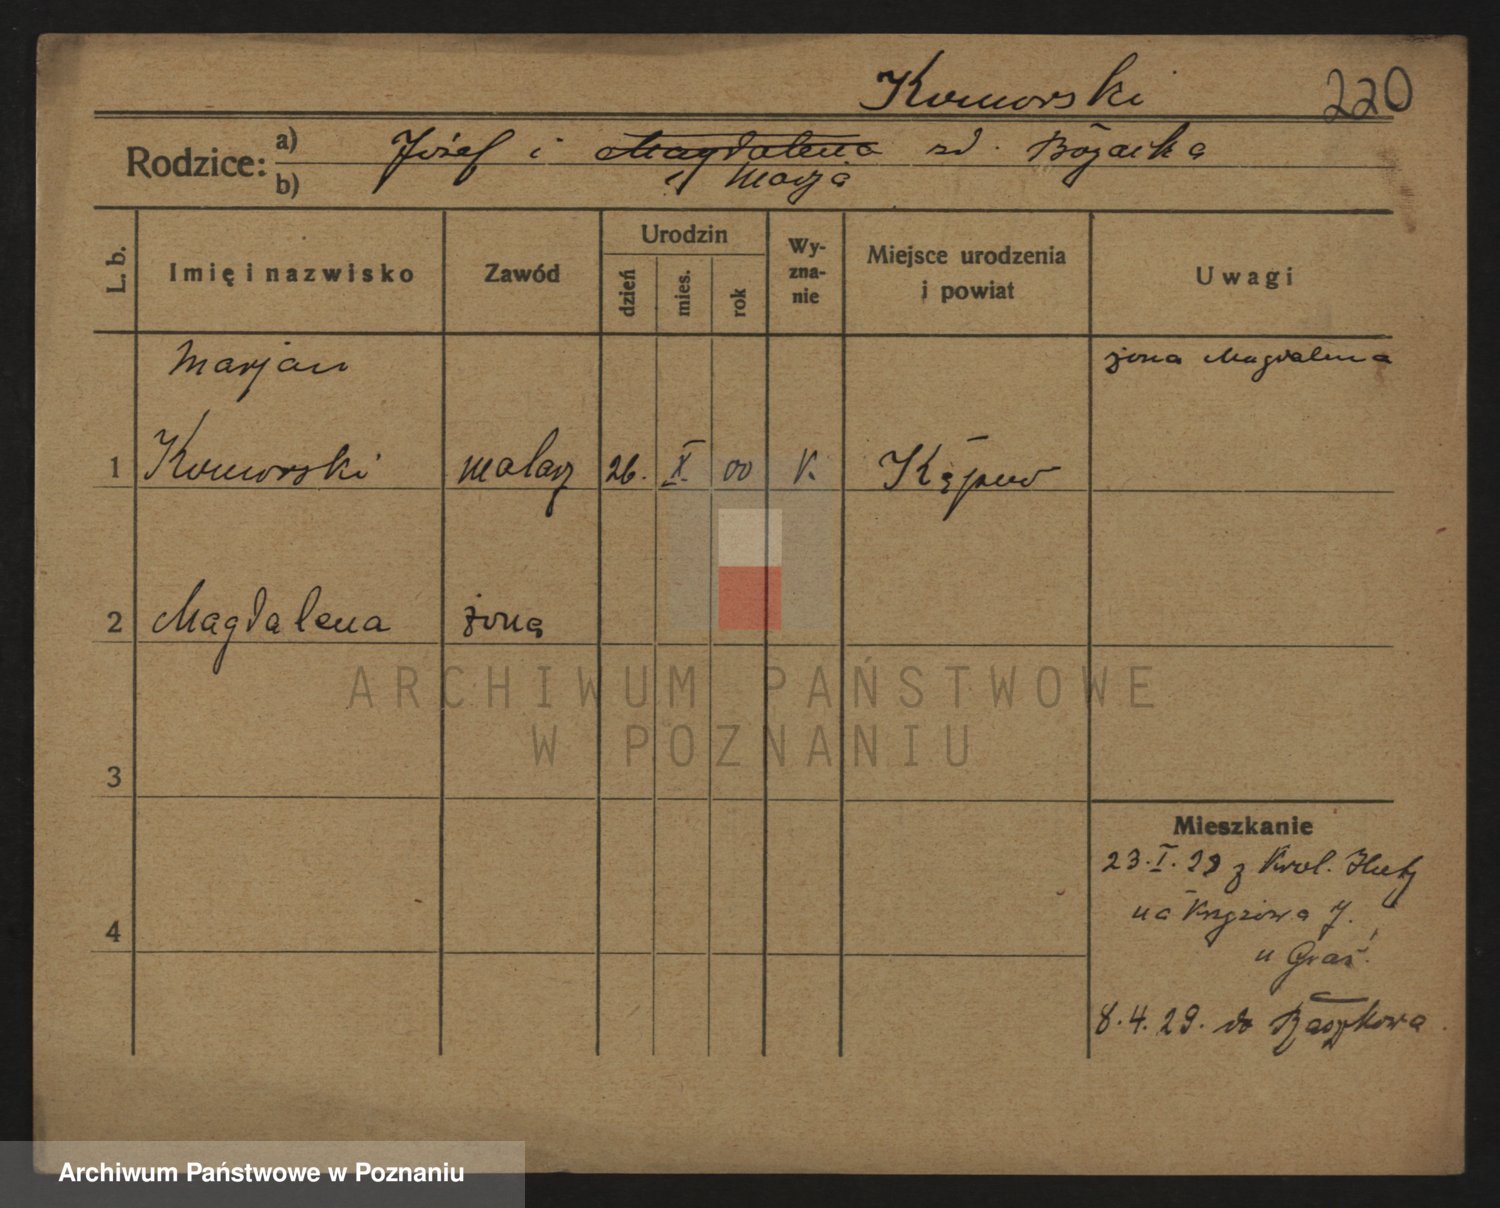 Komorski 220
Rodzice: a) Józef i Magdalena zd. Bożacka
b) Marja
L. b.
Imię i nazwisko
Zawód
Urodzin
dzień
mies.
rok
Wy-
zna-
nie
Miejsce urodzenia
i powiat
Uwagi
Marjan żona Magdalena
1 Komorski malarz 26. X. 00 K. Kępno
2 Magdalena żona
3
4
ARCHIWUM PAŃSTWOWE
W POZNANIU
Mieszkanie
23. I. 29 z Krol. Huty
na
u
8. 4. 29. do Raszkowa
Archiwum Państwowe w Poznaniu